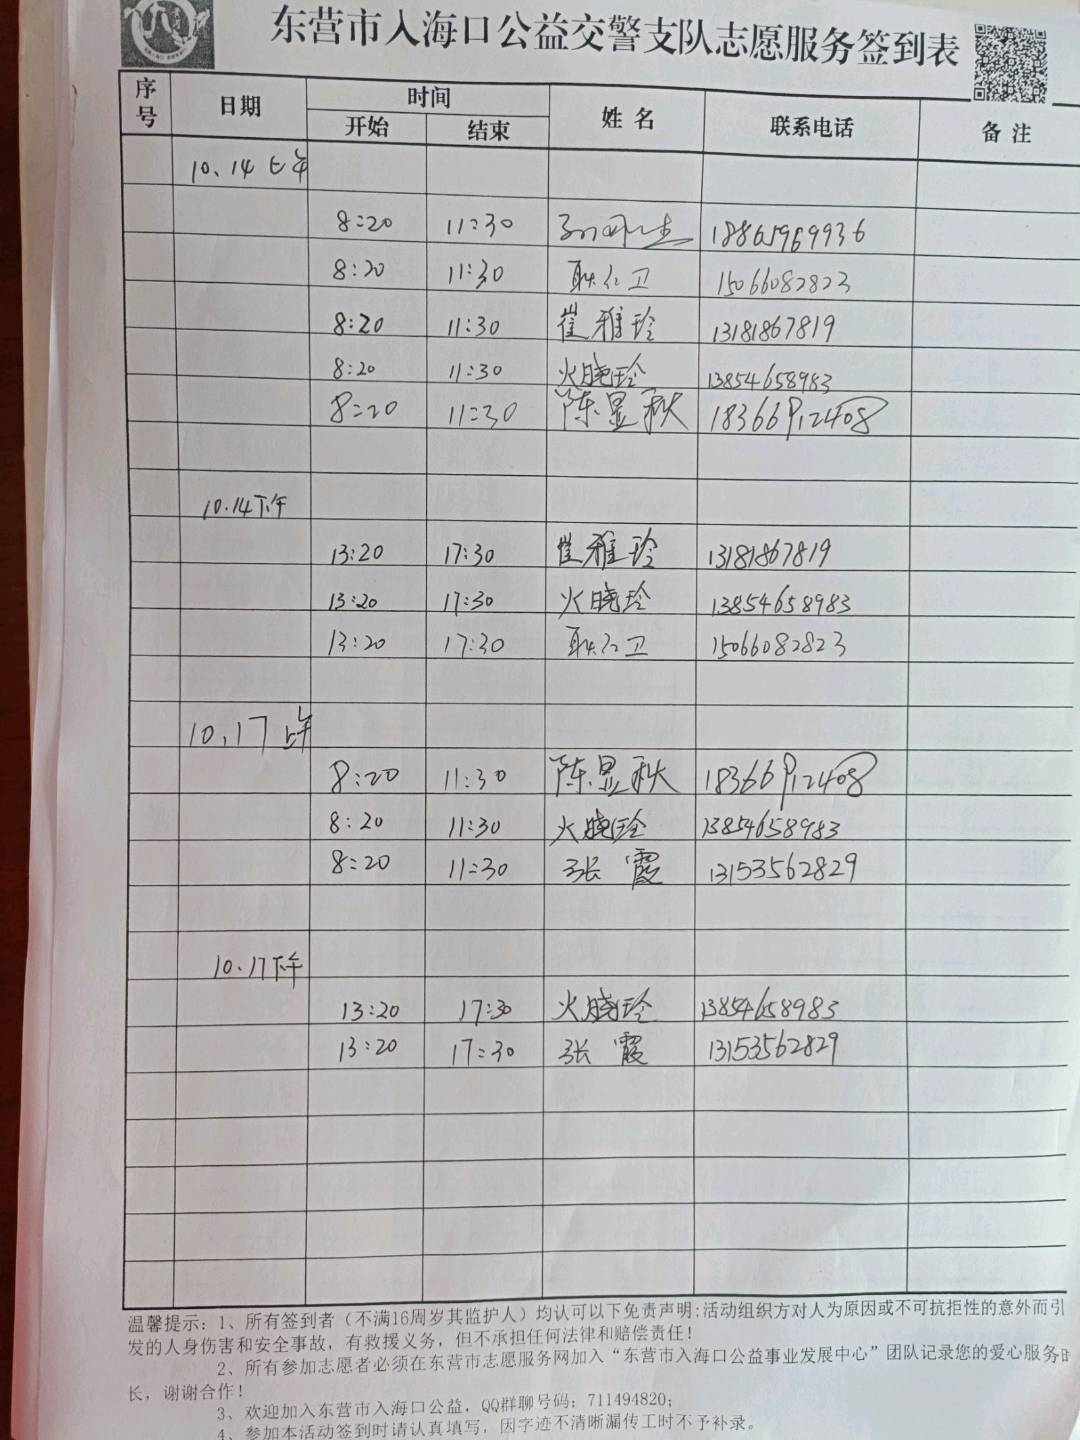 东营市入海口公益交警支队志愿服务签到表
序号 日期 时间 姓名 联系电话 备注
开始 结束
10.14上午
8:20 11:30 18865969936
8:20 11:30 耿仁卫 15066082823
8:20 11:30 崔雅玲 13181867819
8:20 11:30 火晓玲 13854658983
8:20 11:30 陈显秋 18366912408
10.14下午
13:20 17:30 崔雅玲 13181867819
13:20 17:30 火晓玲 13854658983
13:20 17:30 耿仁卫 15066082823
10.17上午
8:20 11:30 陈显秋 18366912408
8:20 11:30 火晓玲 13854658983
8:20 11:30 张霞 13153562829
10.17下午
13:20 17:30 火晓玲 13854658983
13:20 17:30 张霞 13153562829
温馨提示：1、所有签到者（不满16周岁其监护人）均认可以下免责声明：活动组织方对人为原因或不可抗拒性的意外而引
发的人身伤害和安全事故，有救援义务，但不承担任何法律和赔偿责任！
2、所有参加志愿者必须在东营市志愿服务网加入“东营市入海口公益事业发展中心”团队记录您的爱心服务时
长，谢谢合作！
3、欢迎加入东营市入海口公益，QQ群聊号码：711494820；
4、参加本活动签到时请认真填写，因字迹不清晰漏传工时不予补录。